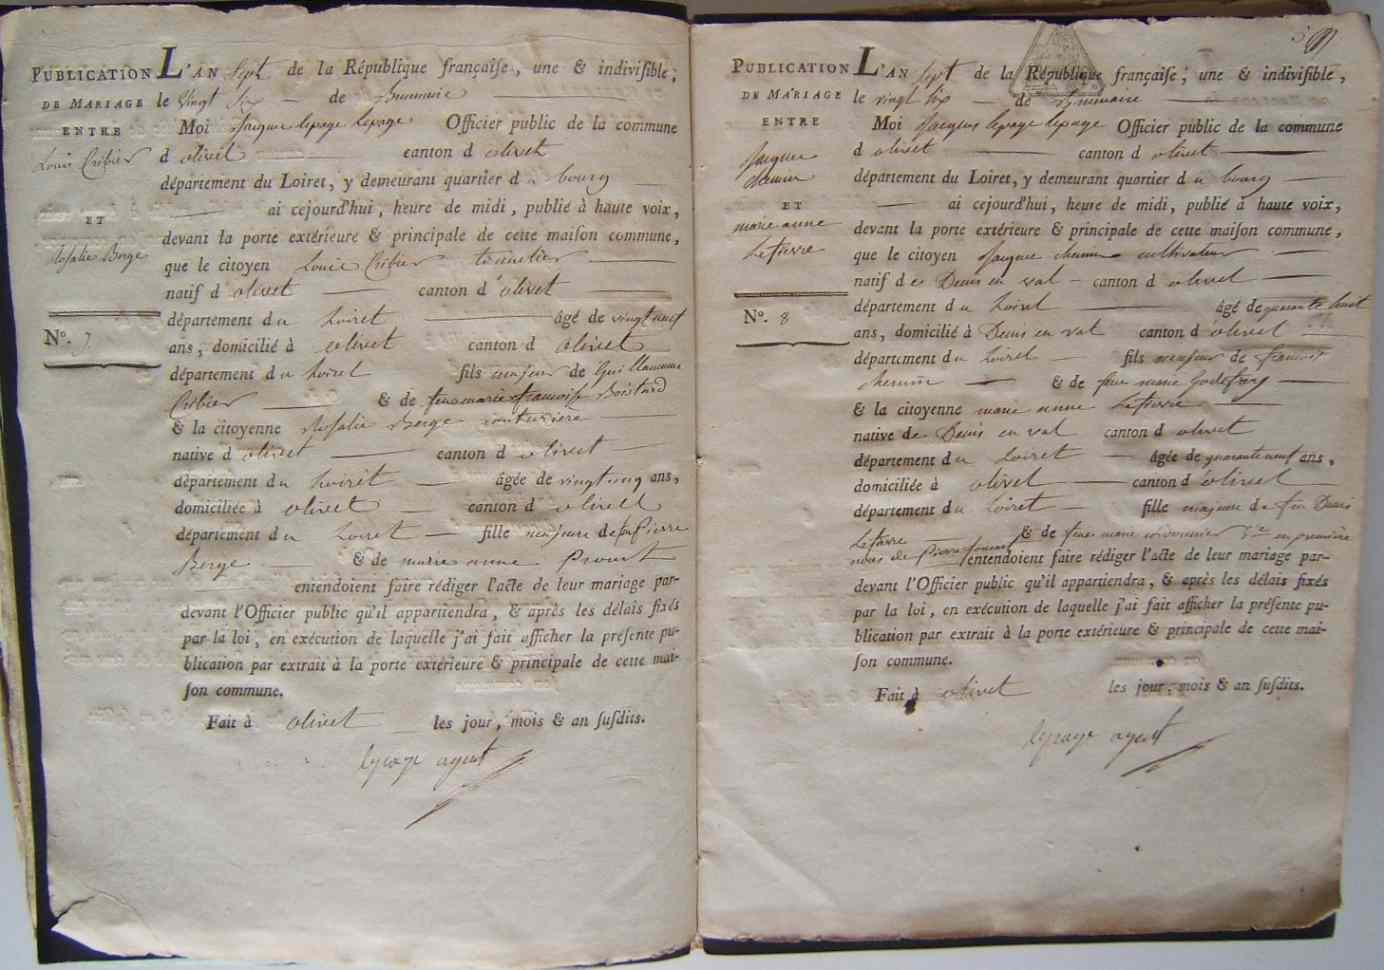 PUBLICATION
DE MARIAGE
ENTRE
Louis Cribier
ET
Rosalie Berge
N°. 7
L'AN Sept de la République françaiſe, une & indiviſible,
le Vingt Six de Brumaire
Moi Jacques lepage lepage Officier public de la commune
d olivet canton d olivet
département du Loiret, y demeurant quartier d u bourg
ai cejourd'hui, heure de midi, publié à haute voix,
devant la porte extérieure & principale de cette maiſon commune,
que le citoyen Louis Cribier tonnelier
natif d olivet canton d olivet
département d u Loiret âgé de vingt
ans, domicilié à olivet canton d olivet
département d u Loiret fils majeur de Guillaume
Cribier & de feue marie francoise Boistard
& la citoyenne Rosalie Berge couturiere
native d olivet canton d olivet
département d u Loiret âgée de vingt cinq ans,
domiciliée à olivet canton d olivet
département d u Loiret fille majeure de feu pierre
Berge & de marie anne Proust
entendoient faire rédiger l'acte de leur mariage par-
devant l'Officier public qu'il appartiendra, & après les délais fixés
par la loi, en exécution de laquelle j'ai fait afficher la préſente pu-
blication par extrait à la porte extérieure & principale de cette mai-
ſon commune.
Fait à olivet les jour, mois & an ſuſdits.
lepage agent
PUBLICATION
DE MARIAGE
ENTRE
Jacques
chemin
ET
marie anne
Lefevre
N°. 8
L'AN Sept de la République françaiſe, une & indiviſible,
le vingt six de Brumaire
Moi Jacques lepage lepage Officier public de la commune
d olivet canton d olivet
département du Loiret, y demeurant quartier d u bourg
ai cejourd'hui, heure de midi, publié à haute voix,
devant la porte extérieure & principale de cette maiſon commune,
que le citoyen Jacques chemin cultivateur
natif d e Denis en val canton d olivet
département d u Loiret âgé de quarante huit
ans, domicilié à Denis en val canton d olivet
département d u Loiret fils majeur de francois
chemin & de feue marie Godefroy
& la citoyenne marie anne Lefevre
native de Denis en val canton d olivet
département d u Loiret âgée de quarante neuf ans,
domiciliée à olivet canton d olivet
département d u Loiret fille majeure de feu Denis
Lefevre & de feue marie en première
noces de Pierre entendoient faire rédiger l'acte de leur mariage par-
devant l'Officier public qu'il appartiendra, & après les délais fixés
par la loi, en exécution de laquelle j'ai fait afficher la préſente pu-
blication par extrait à la porte extérieure & principale de cette mai-
ſon commune.
Fait à olivet les jour, mois & an ſuſdits.
lepage agent